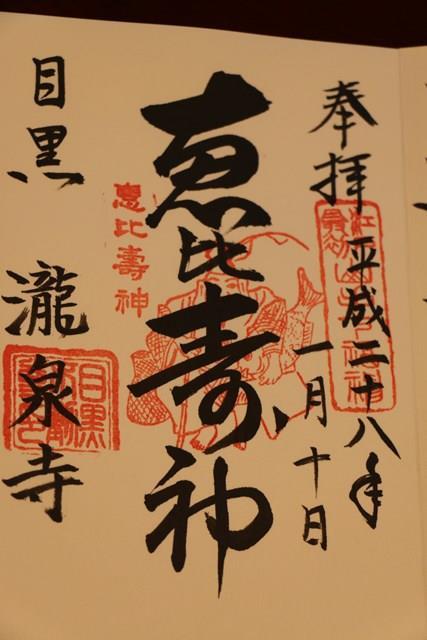 奉拝
平成二十八年
一月十日
恵比寿神
恵比壽神
目黒
瀧泉寺
目黒